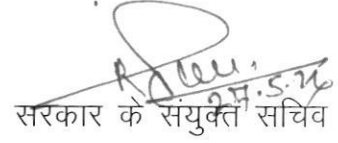 27.5.26
सरकार के संयुक्त सचिव